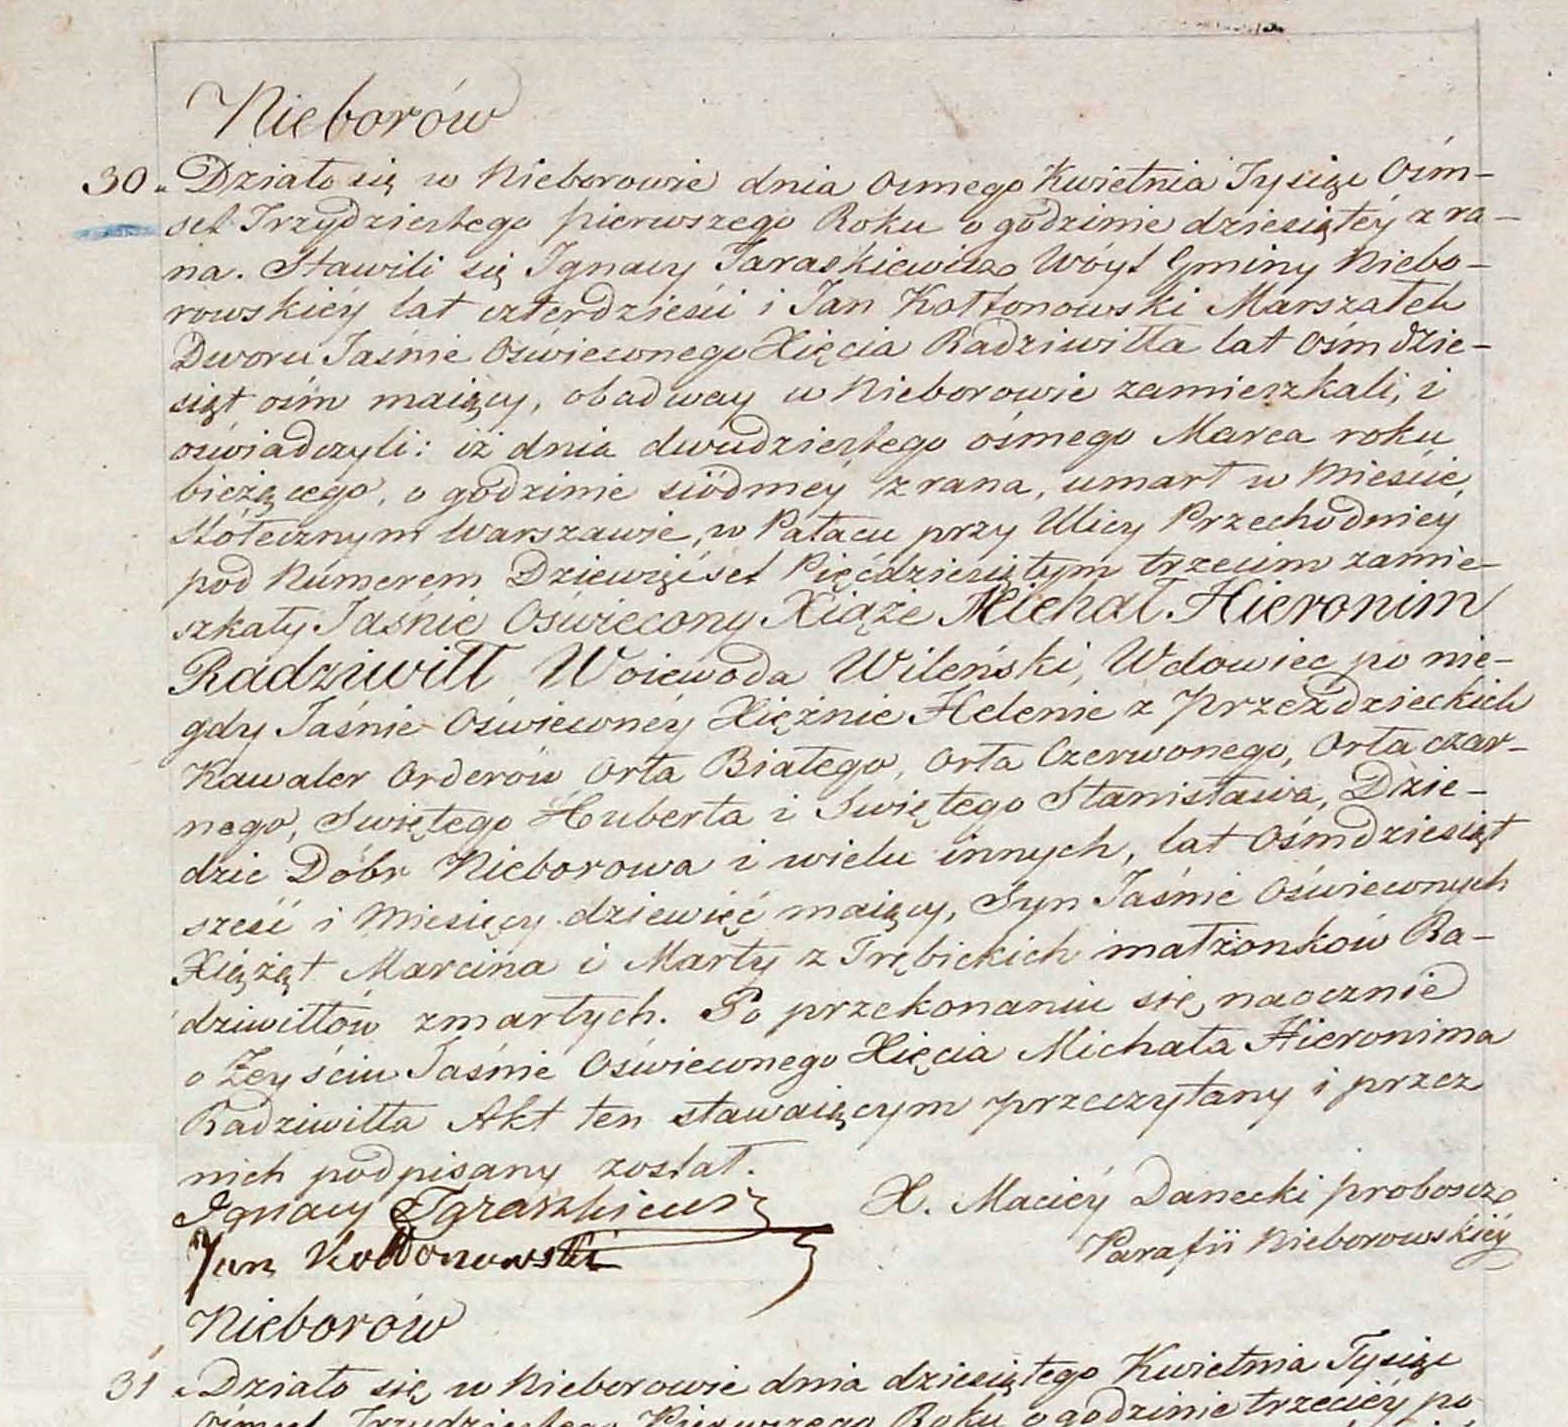 Nieborów
30. Działo się w Nieborowie dnia Osmego Kwietnia Tysiąc Ośm-
set Trzydziestego pierwszego Roku o godzinie dziesiątéy z ra-
na. Stawili się Ignacy Taraskiewicz Wóyt Gminy Niebo-
rowskiéy lat czterdzieści i Jan Kołłonowski Marszałek
Dworu Jaśnie Oświeconego Xięcia Radziwiłła lat Ośmdzie-
siąt ośm maiący, obadway w Nieborowie zamieszkali, i
oświadczyli: iż dnia dwudziestego ósmego Marca roku
bieżącego, o godzinie siódméy z rana, umarł w Mieście
Stołecznym Warszawie, w Pałacu przy Ulicy Przechodniey
pod Numerem Dziewięćset Pięćdziesiątym trzecim zamie-
szkały Jaśnie Oświecony Xiąże Michał Hieronim
Radziwiłł Woiewoda Wileński, Wdowiec po nie-
gdy Jaśnie Oświeconéy Xiężnie Helenie z Przeździeckich
Kawaler Orderów Orła Białego, Orła Czerwonego, Orła czar-
nego, Swiętego Huberta i Swiętego Stanisława, Dzie-
dzic Dóbr Nieborowa i wielu innych, lat Ośmdziesiąt
sześć i Miesięcy dziewięć maiący, Syn Jaśnie Oświeconych
Xiążąt Marcina i Marty z Trębickich małżonków Ra-
dziwiłłów zmarłych. Po przekonaniu się naocznie
o Zeyściu Jaśnie Oświeconego Xięcia Michała Hieronima
Radziwiłła Akt ten stawaiącym przeczytany i przez
nich podpisany został.
Ignacy
X. Maciéy Danecki proboszcz
Jan Kołłonowski
Parafii Nieborowskiéy
Nieborów
31. Działo się w Nieborowie dnia dziesiątego Kwietnia Tysiąc
Ośmset Trzydziestego Pierwszego Roku o godzinie trzeciéy po